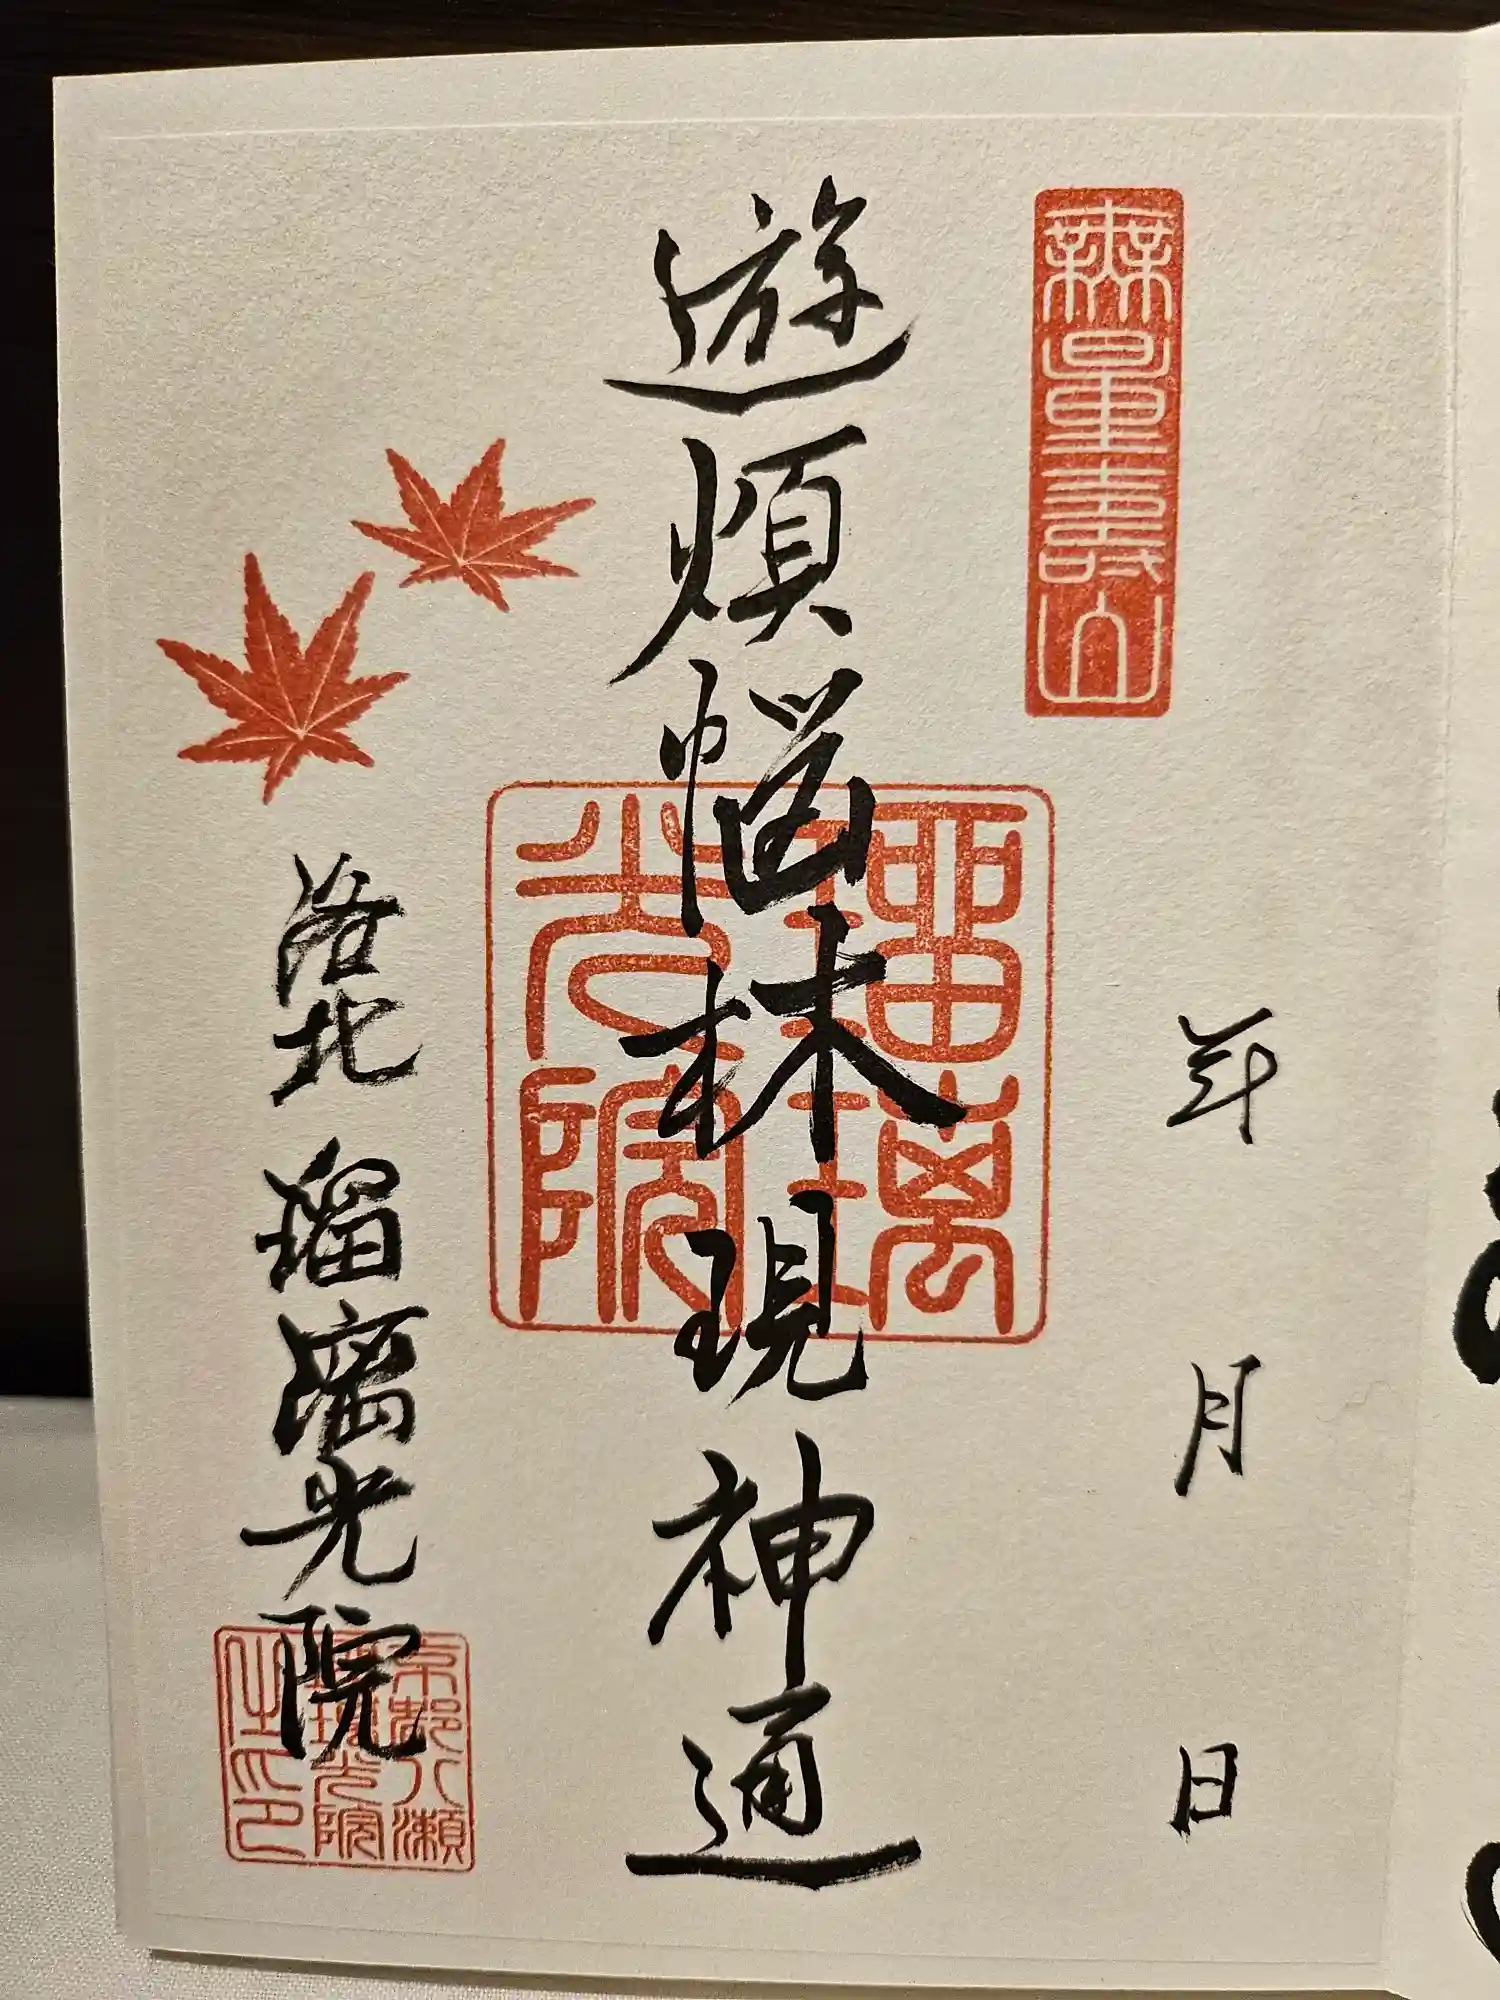 無量壽山
年 月 日
遊煩悩林現神通
瑠璃
光院
洛北 瑠璃光院
京都八瀬
瑠璃光院
之印